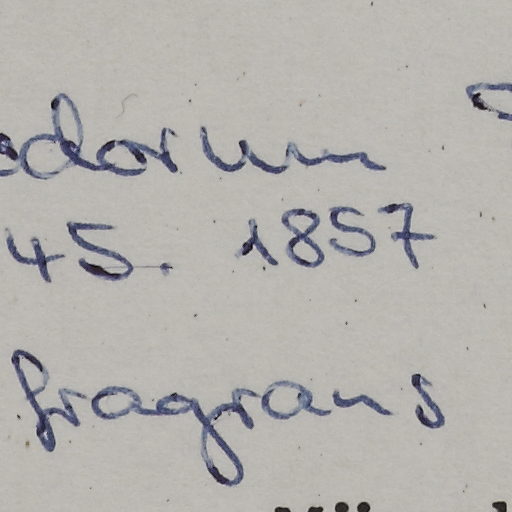 odorum
45. 1857
fragrans